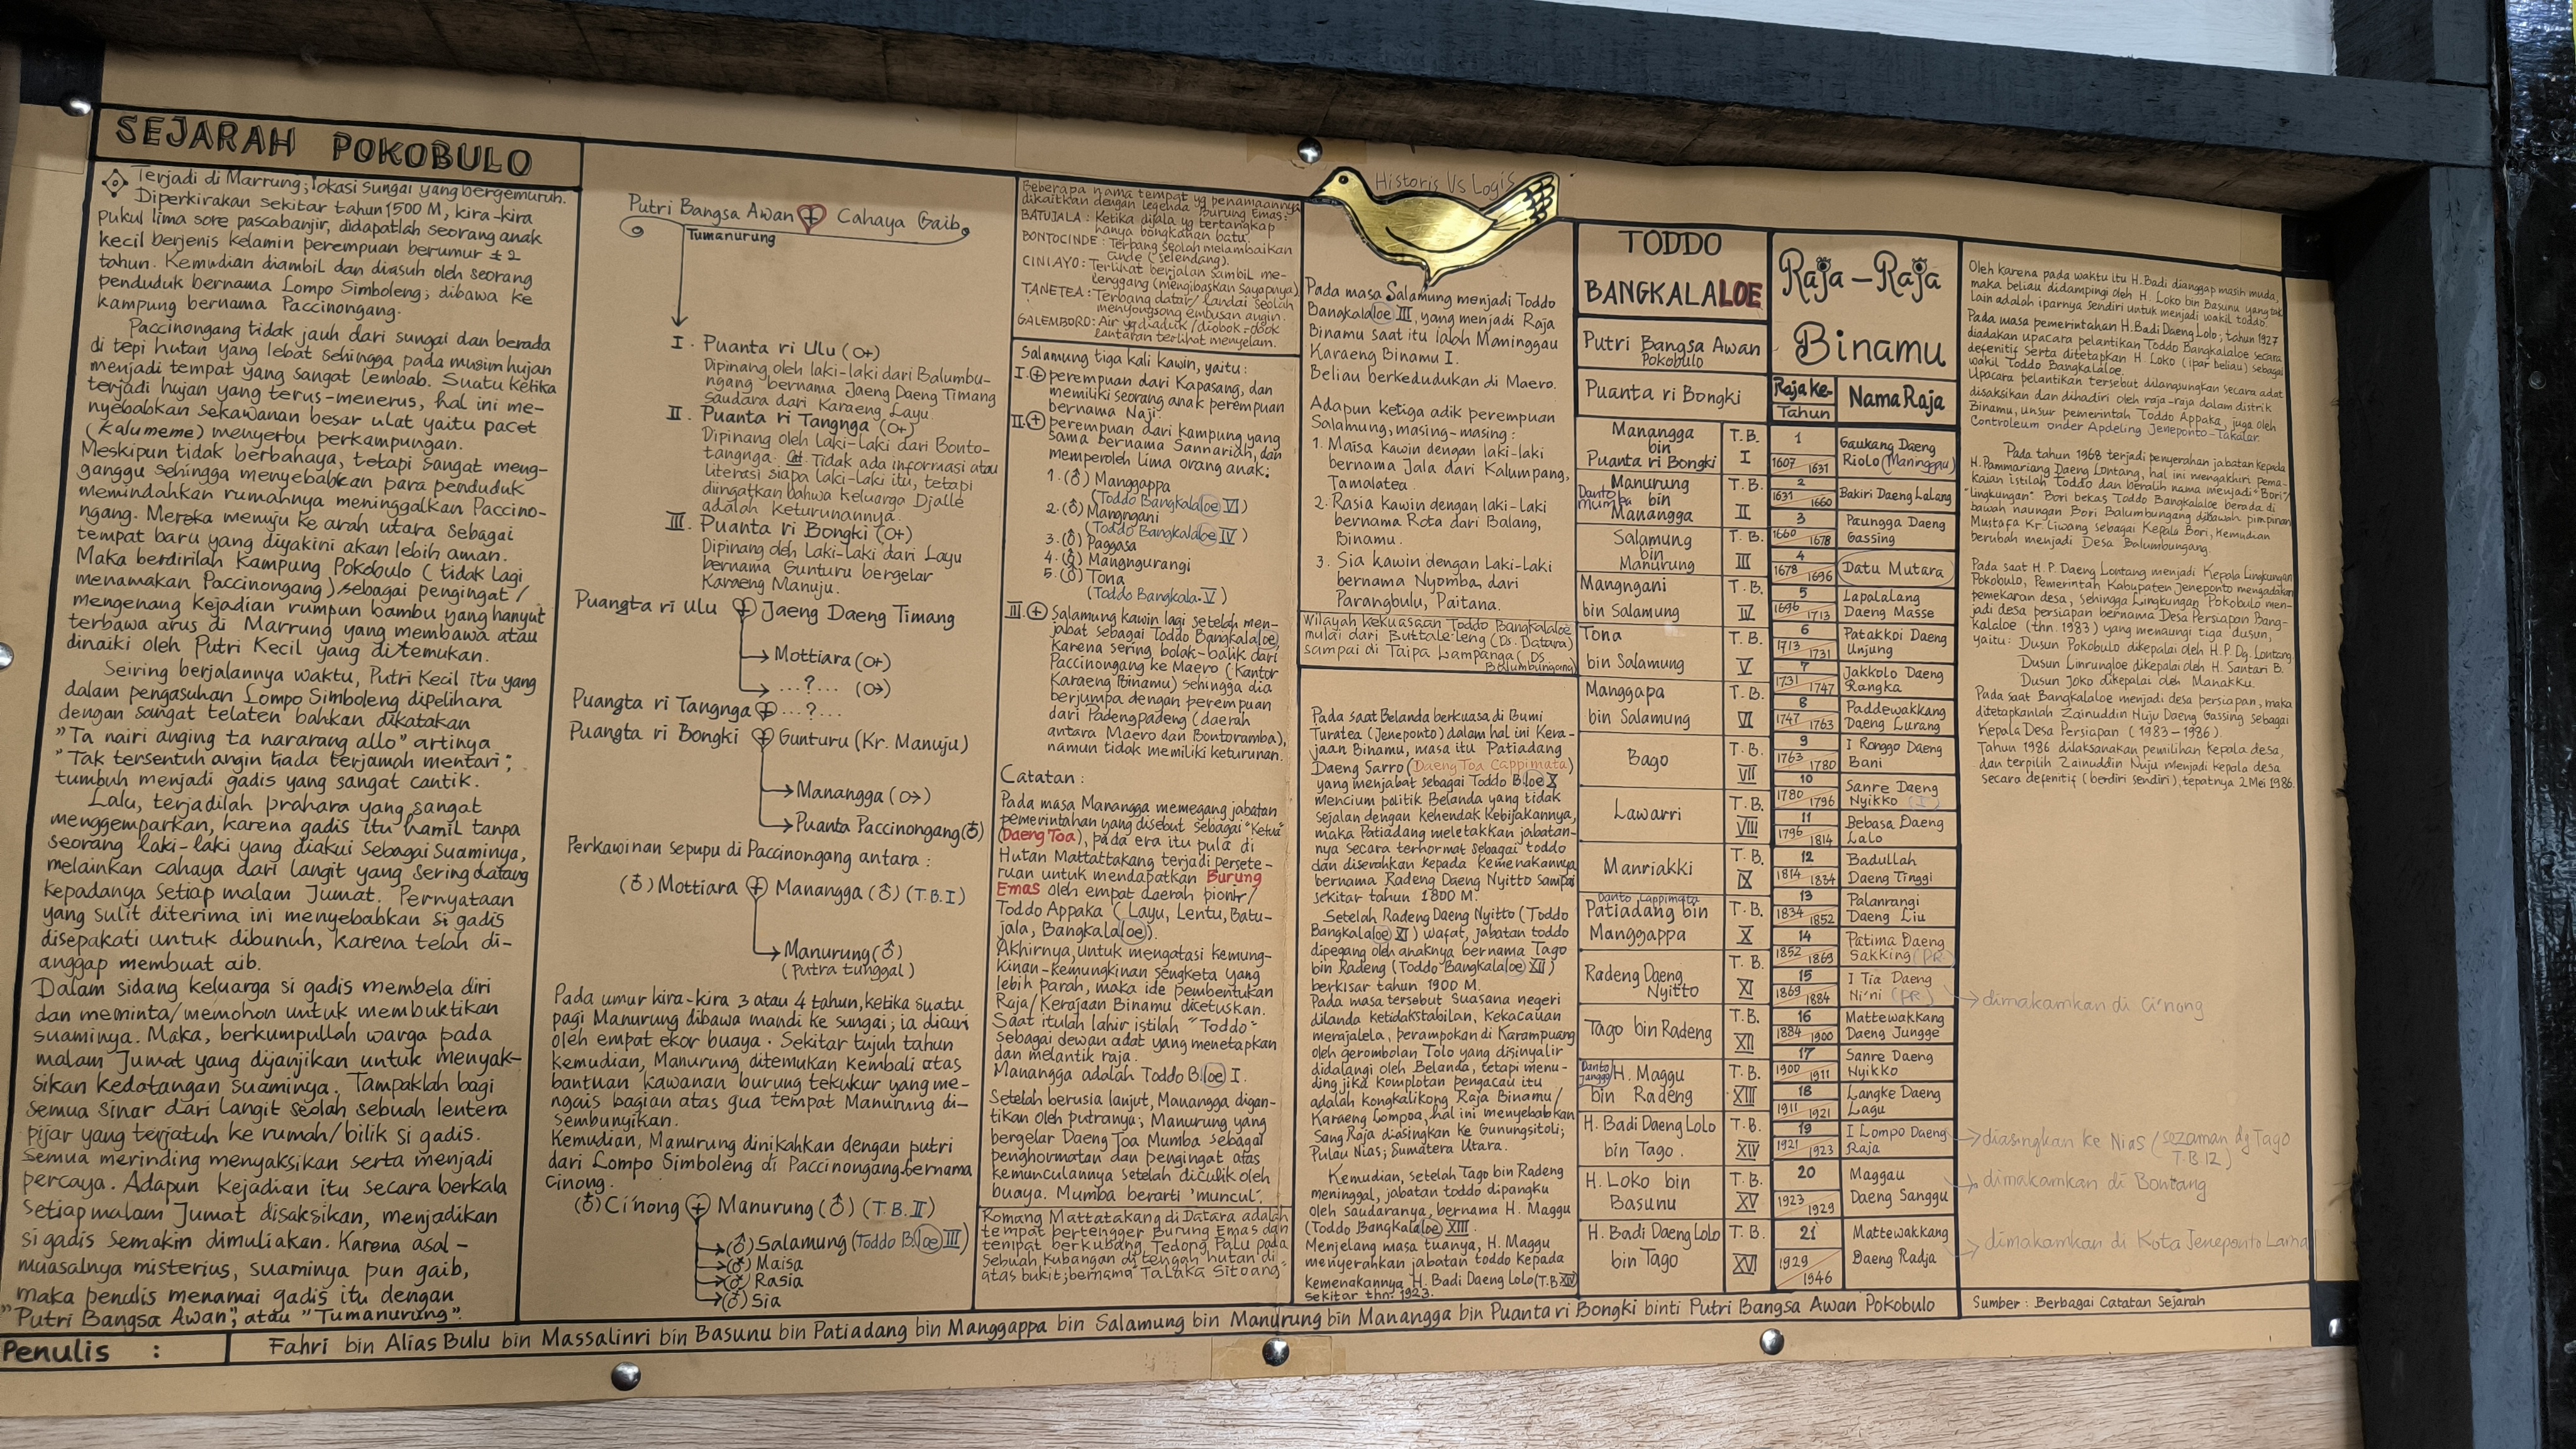 SEJARAH POKOBULO
Terjadi di Marrung; lokasi sungai yang bergemuruh.
Diperkirakan sekitar tahun 1500 M, kira-kira
pukul lima sore pascabanjir, didapatlah seorang anak
kecil berjenis kelamin perempuan berumur ±2
tahun. Kemudian diambil dan diasuh oleh seorang
penduduk bernama Lompo Simboleng; dibawa ke
kampung bernama Paccinongang.
Paccinongang tidak jauh dari sungai dan berada
di tepi hutan yang lebat sehingga pada musim hujan
menjadi tempat yang sangat lembab. Suatu ketika
terjadi hujan yang terus-menerus, hal ini me-
nyebabkan sekawanan besar ulat yaitu pacet
(kalumeme) menyerbu perkampungan.
Meskipun tidak berbahaya, tetapi sangat meng-
ganggu sehingga menyebabkan para penduduk
memindahkan rumahnya meninggalkan Paccino-
ngang. Mereka menuju ke arah utara sebagai
tempat baru yang diyakini akan lebih aman.
Maka berdirilah Kampung Pokobulo (tidak lagi
menamakan Paccinongang) sebagai pengingat/
mengenang kejadian rumpun bambu yang hanyut
terbawa arus di Marrung yang membawa atau
dinaiki oleh Putri Kecil yang ditemukan.
Seiring berjalannya waktu, Putri Kecil itu yang
dalam pengasuhan Lompo Simboleng dipelihara
dengan sangat telaten bahkan dikatakan
"Ta nairi anging ta nararang allo" artinya
"Tak tersentuh angin tiada terjamah mentari";
tumbuh menjadi gadis yang sangat cantik.
Lalu, terjadilah prahara yang sangat
menggemparkan, karena gadis itu hamil tanpa
seorang laki-laki yang diakui sebagai suaminya,
melainkan cahaya dari langit yang sering datang
kepadanya setiap malam Jumat. Pernyataan
yang sulit diterima ini menyebabkan si gadis
disepakati untuk dibunuh, karena telah di-
anggap membuat aib.
Dalam sidang keluarga si gadis membela diri
dan meminta/memohon untuk membuktikan
suaminya. Maka, berkumpullah warga pada
malam Jumat yang dijanjikan untuk menyak-
sikan kedatangan suaminya. Tampaklah bagi
semua sinar dari langit seolah sebuah lentera
pijar yang terjatuh ke rumah/bilik si gadis.
Semua merinding menyaksikan serta menjadi
percaya. Adapun kejadian itu secara berkala
setiap malam Jumat disaksikan, menjadikan
si gadis semakin dimuliakan. Karena asal-
muasalnya misterius, suaminya pun gaib,
maka penulis menamai gadis itu dengan
"Putri Bangsa Awan", atau "Tumanurung".
Putri Bangsa Awan Cahaya Gaib
Tumanurung
I. Puanta ri Ulu (♀)
Dipinang oleh laki-laki dari Balumbu-
ngang bernama Jaeng Daeng Timang
saudara dari Karaeng Layu.
II. Puanta ri Tangnga (♀)
Dipinang oleh laki-laki dari Bonto-
tangnga. Cat. Tidak ada informasi atau
literasi siapa laki-laki itu, tetapi
diingatkan bahwa keluarga Djalle
adalah keturunannya.
III. Puanta ri Bongki (♀)
Dipinang oleh laki-laki dari Layu
bernama Gunturu bergelar
Karaeng Manuju.
Puangta ri Ulu Jaeng Daeng Timang
Mottiara (♀)
...?... (♂)
Puangta ri Tangnga ...?...
Puangta ri Bongki Gunturu (Kr. Manuju)
Manangga (♂)
Puanta Paccinongang (♂)
Perkawinan sepupu di Paccinongang antara :
(♂) Mottiara Manangga (♂) (T.B.I)
Manurung (♂)
(Putra tunggal)
Pada umur kira-kira 3 atau 4 tahun, ketika suatu
pagi Manurung dibawa mandi ke sungai; ia dicuri
oleh empat ekor buaya. Sekitar tujuh tahun
kemudian, Manurung ditemukan kembali atas
bantuan kawanan burung tekukur yang me-
ngais bagian atas gua tempat Manurung di-
sembunyikan.
Kemudian, Manurung dinikahkan dengan putri
dari Lompo Simboleng di Paccinongang bernama
Cinong.
(♂) Ci'nong Manurung (♂) (T.B.II)
(♂) Salamung (Toddo B.loe III)
(♂) Maisa
(♂) Rasia
(♂) Sia
Beberapa nama tempat yg penamaannya
dikaitkan dengan legenda Burung Emas:
BATUJALA : Ketika dijala yg tertangkap
hanya bongkahan batu.
BONTOCINDE : Terbang seolah melambaikan
cinde (selendang).
CINI AYO : Terlihat berjalan sambil me-
lenggang (mengibaskan sayapnya)
TANETEA : Terbang datar/landai seolah
menyongsong embusan angin.
GALEMBORO : Air yg diaduk/diobok-obok
lantaran terlihat menyelam.
Salamung tiga kali kawin, yaitu :
I. perempuan dari Kapasang, dan
memiliki seorang anak perempuan
bernama Naji.
II. perempuan dari kampung yang
sama bernama Sannariah, dan
memperoleh lima orang anak:
1. (♂) Manggappa
(Toddo Bangkalaloe VI)
2. (♂) Mangngani
(Toddo Bangkalaloe IV)
3. (♂) Paggasa
4. (♂) Mangngurangi
5. (♂) Tona
(Toddo Bangkala.V)
III. Salamung kawin lagi setelah men-
jabat sebagai Toddo Bangkalaloe,
karena sering bolak-balik dari
Paccinongang ke Maero (Kantor
Karaeng Binamu) sehingga dia
berjumpa dengan perempuan
dari Padengpadeng (daerah
antara Maero dan Bontoramba),
namun tidak memiliki keturunan.
Catatan :
Pada masa Manangga memegang jabatan
pemerintahan yang disebut sebagai "Ketua"
(Daeng Toa), pada era itu pula di
Hutan Mattattakang terjadi persete-
ruan untuk mendapatkan Burung
Emas oleh empat daerah pionir/
Toddo Appaka (Layu, Lentu, Batu-
jala, Bangkalaloe).
Akhirnya, untuk mengatasi kemung-
kinan-kemungkinan sengketa yang
lebih parah, maka ide pembentukan
Raja/Kerajaan Binamu dicetuskan.
Saat itulah lahir istilah "Toddo"
sebagai dewan adat yang menetapkan
dan melantik raja.
Manangga adalah Toddo B.loe I.
Setelah berusia lanjut, Manangga digan-
tikan oleh putranya; Manurung yang
bergelar Daeng Toa Mumba sebagai
penghormatan dan pengingat atas
kemunculannya setelah diculik oleh
buaya. Mumba berarti 'muncul'.
Romang Mattatakang di Datara adalah
tempat bertengger Burung Emas dan
tempat berkubang Tedong Palu pada
sebuah kubangan di tengah hutan di
atas bukit; bernama "TaLaka Sitoang"
Historis Vs Logis
Pada masa Salamung menjadi Toddo
Bangkalaloe III, yang menjadi Raja
Binamu saat itu ialah Maninggau
Karaeng Binamu I.
Beliau berkedudukan di Maero.
Adapun ketiga adik perempuan
Salamung, masing-masing :
1. Maisa kawin dengan laki-laki
bernama Jala dari Kalumpang,
Tamalatea.
2. Rasia kawin dengan laki-laki
bernama Rota dari Balang,
Binamu.
3. Sia kawin dengan laki-laki
bernama Nyomba dari
Parangbulu, Paitana.
Wilayah kekuasaan Toddo Bangkalaloe
mulai dari Buttale'leng (Ds. Datara)
sampai di Taipa Lampanga (Ds.
Balumbungang)
Pada saat Belanda berkuasa di Bumi
Turatea (Jeneponto) dalam hal ini Kera-
jaan Binamu, masa itu Patiadang
Daeng Sarro (Daeng Toa Cappimata)
yang menjabat sebagai Toddo B.loe X
mencium politik Belanda yang tidak
sejalan dengan kehendak kebijakannya,
maka Patiadang meletakkan jabatan-
nya secara terhormat sebagai toddo
dan diserahkan kepada kemenakannya
bernama Radeng Daeng Nyitto sampai
sekitar tahun 1800 M.
Setelah Radeng Daeng Nyitto (Toddo
Bangkalaloe XI) wafat, jabatan toddo
dipegang oleh anaknya bernama Tago
bin Radeng (Toddo Bangkalaloe XII)
berkisar tahun 1900 M.
Pada masa tersebut suasana negeri
dilanda ketidakstabilan, kekacauan
merajalela, perampokan di Karampuang
oleh gerombolan Tolo yang disinyalir
didalangi oleh Belanda, tetapi menu-
ding jika komplotan pengacau itu
adalah kongkalikong Raja Binamu/
Karaeng Lompoa, hal ini menyebabkan
Sang Raja diasingkan ke Gunungsitoli;
Pulau Nias; Sumatera Utara.
Kemudian, setelah Tago bin Radeng
meninggal, jabatan toddo dipangku
oleh saudaranya, bernama H. Maggu
(Toddo Bangkalaloe XIII.
Menjelang masa tuanya, H. Maggu
menyerahkan jabatan toddo kepada
kemenakannya H. Badi Daeng Lolo (T.B XIV)
sekitar thn. 1923.
TODDO
BANGKALALOE
Putri Bangsa Awan
Pokobulo
Puanta ri Bongki
Manangga bin Puanta ri Bongki T.B. I
Manurung bin Manangga T.B. II
Salamung bin Manurung T.B. III
Mangngani bin Salamung T.B. IV
Tona bin Salamung T.B. V
Manggapa bin Salamung T.B. VI
Bago T.B. VII
Lawarri T.B. VIII
Manriakki T.B. IX
Danto Cappimata
Patiadang bin Manggappa T.B. X
Radeng Daeng Nyitto T.B. XI
Tago bin Radeng T.B. XII
Danto Janggo H. Maggu bin Radeng T.B. XIII
H. Badi Daeng Lolo bin Tago. T.B. XIV
H. Loko bin Basunu T.B. XV
H. Badi Daeng Lolo bin Tago T.B. XVI
Raja-Raja
Binamu
Raja Ke- Tahun Nama Raja
1 1607 1631 Gaukang Daeng Riolo (Maninggau)
2 1631 1660 Bakiri Daeng Lalang
3 1660 1678 Paungga Daeng Gassing
4 1678 1696 Datu Mutara
5 1696 1713 Lapalalang Daeng Masse
6 1713 1731 Patakkoi Daeng Unjung
7 1731 1747 Jakkolo Daeng Rangka
8 1747 1763 Paddewakkang Daeng Lurang
9 1763 1780 I Ronggo Daeng Bani
10 1780 1796 Sanre Daeng Nyikko (I)
11 1796 1814 Bebasa Daeng Lalo
12 1814 1834 Badullah Daeng Tinggi
13 1834 1852 Palanrangi Daeng Liu
14 1852 1869 Patima Daeng Sakking (PR)
15 1869 1884 I Tia Daeng Ni'ni (PR) dimakamkan di Ci'nong
16 1884 1900 Mattewakkang Daeng Jungge
17 1900 1911 Sanre Daeng Nyikko
18 1911 1921 Langke Daeng Lagu
19 1921 1923 I Lompo Daeng Raja diasingkan ke Nias (sezaman dg Tago T.B.12)
20 1923 1929 Maggau Daeng Sanggu dimakamkan di Bontang
21 1929 1946 Mattewakkang Daeng Radja dimakamkan di Kota Jeneponto Lama
Oleh karena pada waktu itu H.Badi dianggap masih muda,
maka beliau didampingi oleh H. Loko bin Basunu yang tak
lain adalah iparnya sendiri untuk menjadi wakil toddo.
Pada masa pemerintahan H.Badi Daeng Lolo; tahun 1927
diadakan upacara pelantikan Toddo Bangkalaloe secara
defenitif serta ditetapkan H. Loko (ipar beliau) sebagai
wakil Toddo Bangkalaloe.
Upacara pelantikan tersebut dilangsungkan secara adat
disaksikan dan dihadiri oleh raja-raja dalam distrik
Binamu, unsur pemerintah Toddo Appaka, juga oleh
Controleum onder Apdeling Jeneponto-Takalar.
Pada tahun 1968 terjadi penyerahan jabatan kepada
H. Pammariang Daeng Lontang, hal ini mengakhiri pema-
kaian istilah Toddo dan beralih nama menjadi "Bori"/
"lingkungan". Bori bekas Toddo Bangkalaloe berada di
bawah naungan Bori Balumbungang dibawah pimpinan
Mustafa Kr. Liwang sebagai Kepala Bori, kemudian
berubah menjadi Desa Balumbungang.
Pada saat H. P. Daeng Lontang menjadi Kepala Lingkungan
Pokobulo, Pemerintah Kabupaten Jeneponto mengadakan
pemekaran desa, sehingga Lingkungan Pokobulo men-
jadi desa persiapan bernama Desa Persiapan Bang-
kalaloe (thn. 1983) yang menaungi tiga dusun,
yaitu: Dusun Pokobulo dikepalai oleh H.P. Dg. Lontang.
Dusun Linrungloe dikepalai oleh H. Santari B.
Dusun Joko dikepalai oleh Manakku.
Pada saat Bangkalaloe menjadi desa persiapan, maka
ditetapkanlah Zainuddin Nuju Daeng Gassing sebagai
Kepala Desa Persiapan (1983-1986).
Tahun 1986 dilaksanakan pemilihan kepala desa,
dan terpilih Zainuddin Nuju menjadi kepala desa
secara defenitif (berdiri sendiri), tepatnya 2 Mei 1986.
Sumber : Berbagai Catatan Sejarah
Penulis : Fahri bin Alias Bulu bin Massalinri bin Basunu bin Patiadang bin Manggappa bin Salamung bin Manurung bin Manangga bin Puanta ri Bongki binti Putri Bangsa Awan Pokobulo